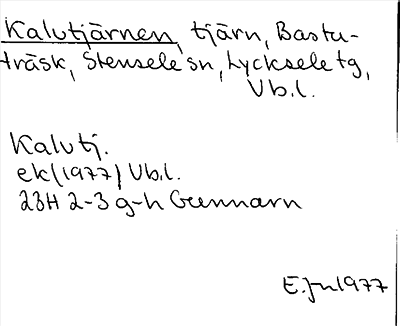 Kalutjärnen, tjärn, Bastu-
träsk, Stensele sn, Lycksele tg,
Vb.l.
Kalutj.
ek (1977) Vb.l.
23H 2-3 g-h Gunnarn
E.Jn 1977